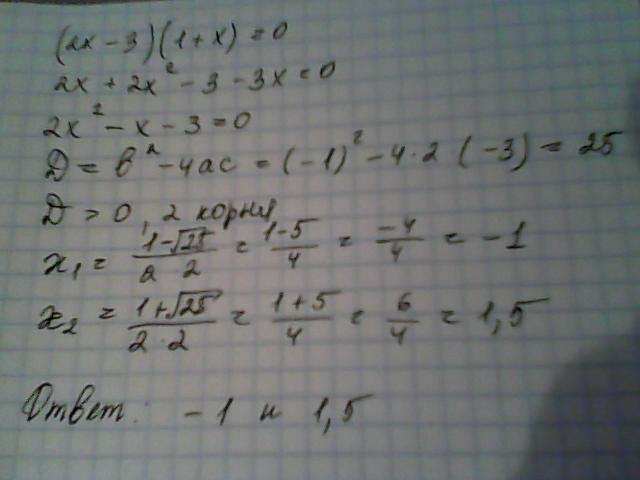 (2x-3)(1+x)=0
2x+2x²-3-3x=0
2x²-x-3=0
D=b²-4ac=(-1)²-4·2(-3)=25
D>0, 2 корня
x₁=(1-√25)/(2 2)=(1-5)/4=-4/4=-1
x₂=(1+√25)/(2·2)=(1+5)/4=6/4=1,5
Ответ: -1 и 1,5